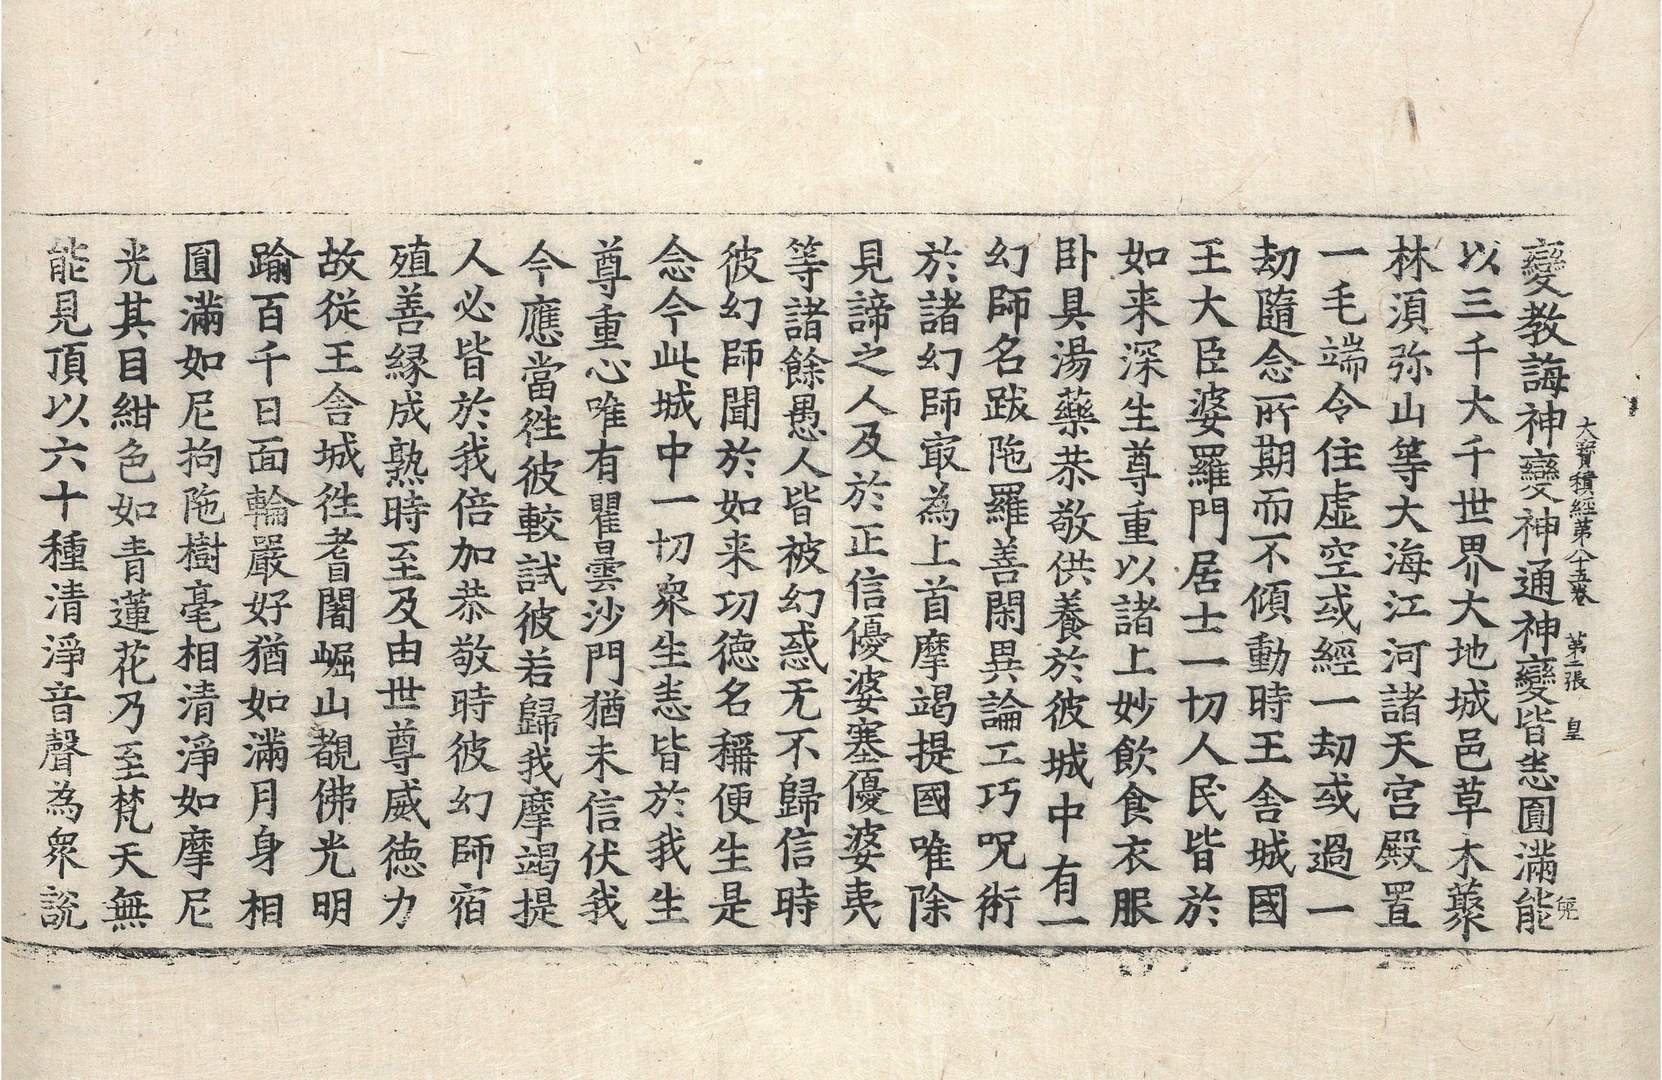 大寶積經第八十五卷　第二張　皇
變教誨神變神通神變皆悉圓滿能
以三千大千世界大地城邑草木藂
林須弥山等大海江河諸天宮殿置
一毛端令住虛空或經一劫或過一
劫隨念所期而不傾動時王舍城國
王大臣婆羅門居士一切人民皆於
如来深生尊重以諸上妙飲食衣服
卧具湯藥恭敬供養於彼城中有一
幻師名跋陁羅善閑異論工巧呪術
於諸幻師㝡為上首摩竭提國唯除
見諦之人及於正信優婆塞優婆夷
等諸餘愚人皆被幻惑无不歸信時
彼幻師聞於如来功德名稱便生是
念今此城中一切衆生悉皆於我生
尊重心唯有瞿曇沙門猶未信伏我
今應當徃彼較試彼若歸我摩竭提
人必皆於我倍加恭敬時彼幻師宿
殖善緣成熟時至及由世尊威德力
故從王舍城徃耆闍崛山覩佛光明
踰百千日面輪嚴好猶如滿月身相
圓滿如尼拘陁樹毫相清淨如摩尼
光其目紺色如青蓮花乃至梵天無
能見頂以六十種清淨音聲為衆說